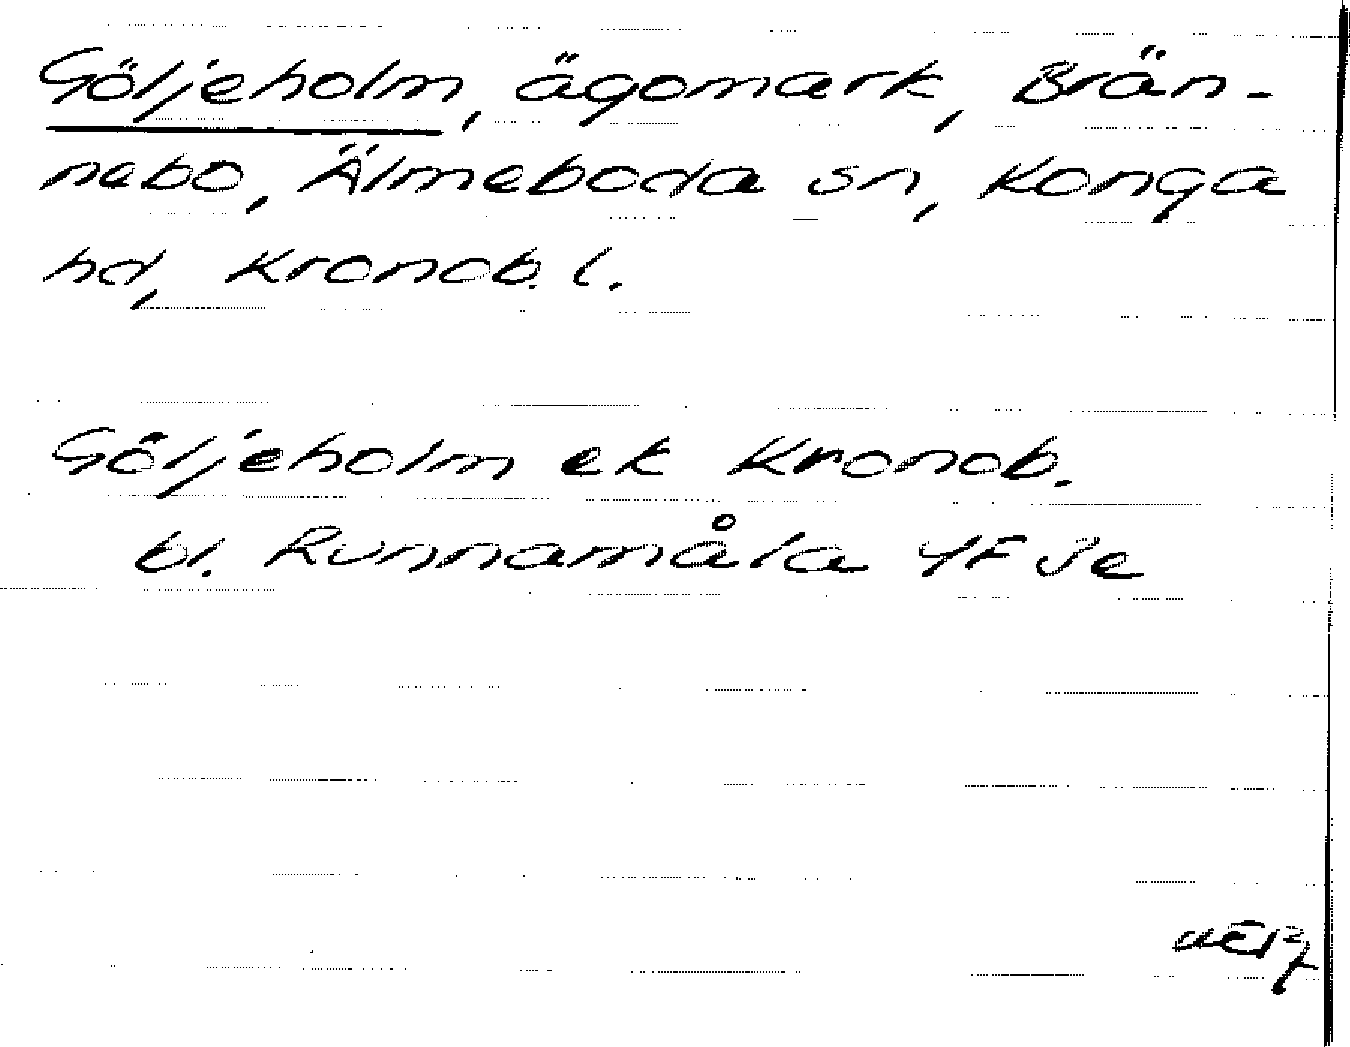 Göljeholm, ägomark, Brän-
nebo, Älmeboda sn, Konga
hd, Kronob. l.
Göljeholm ek Kronob.
bl. Runnamåla 4F 3e